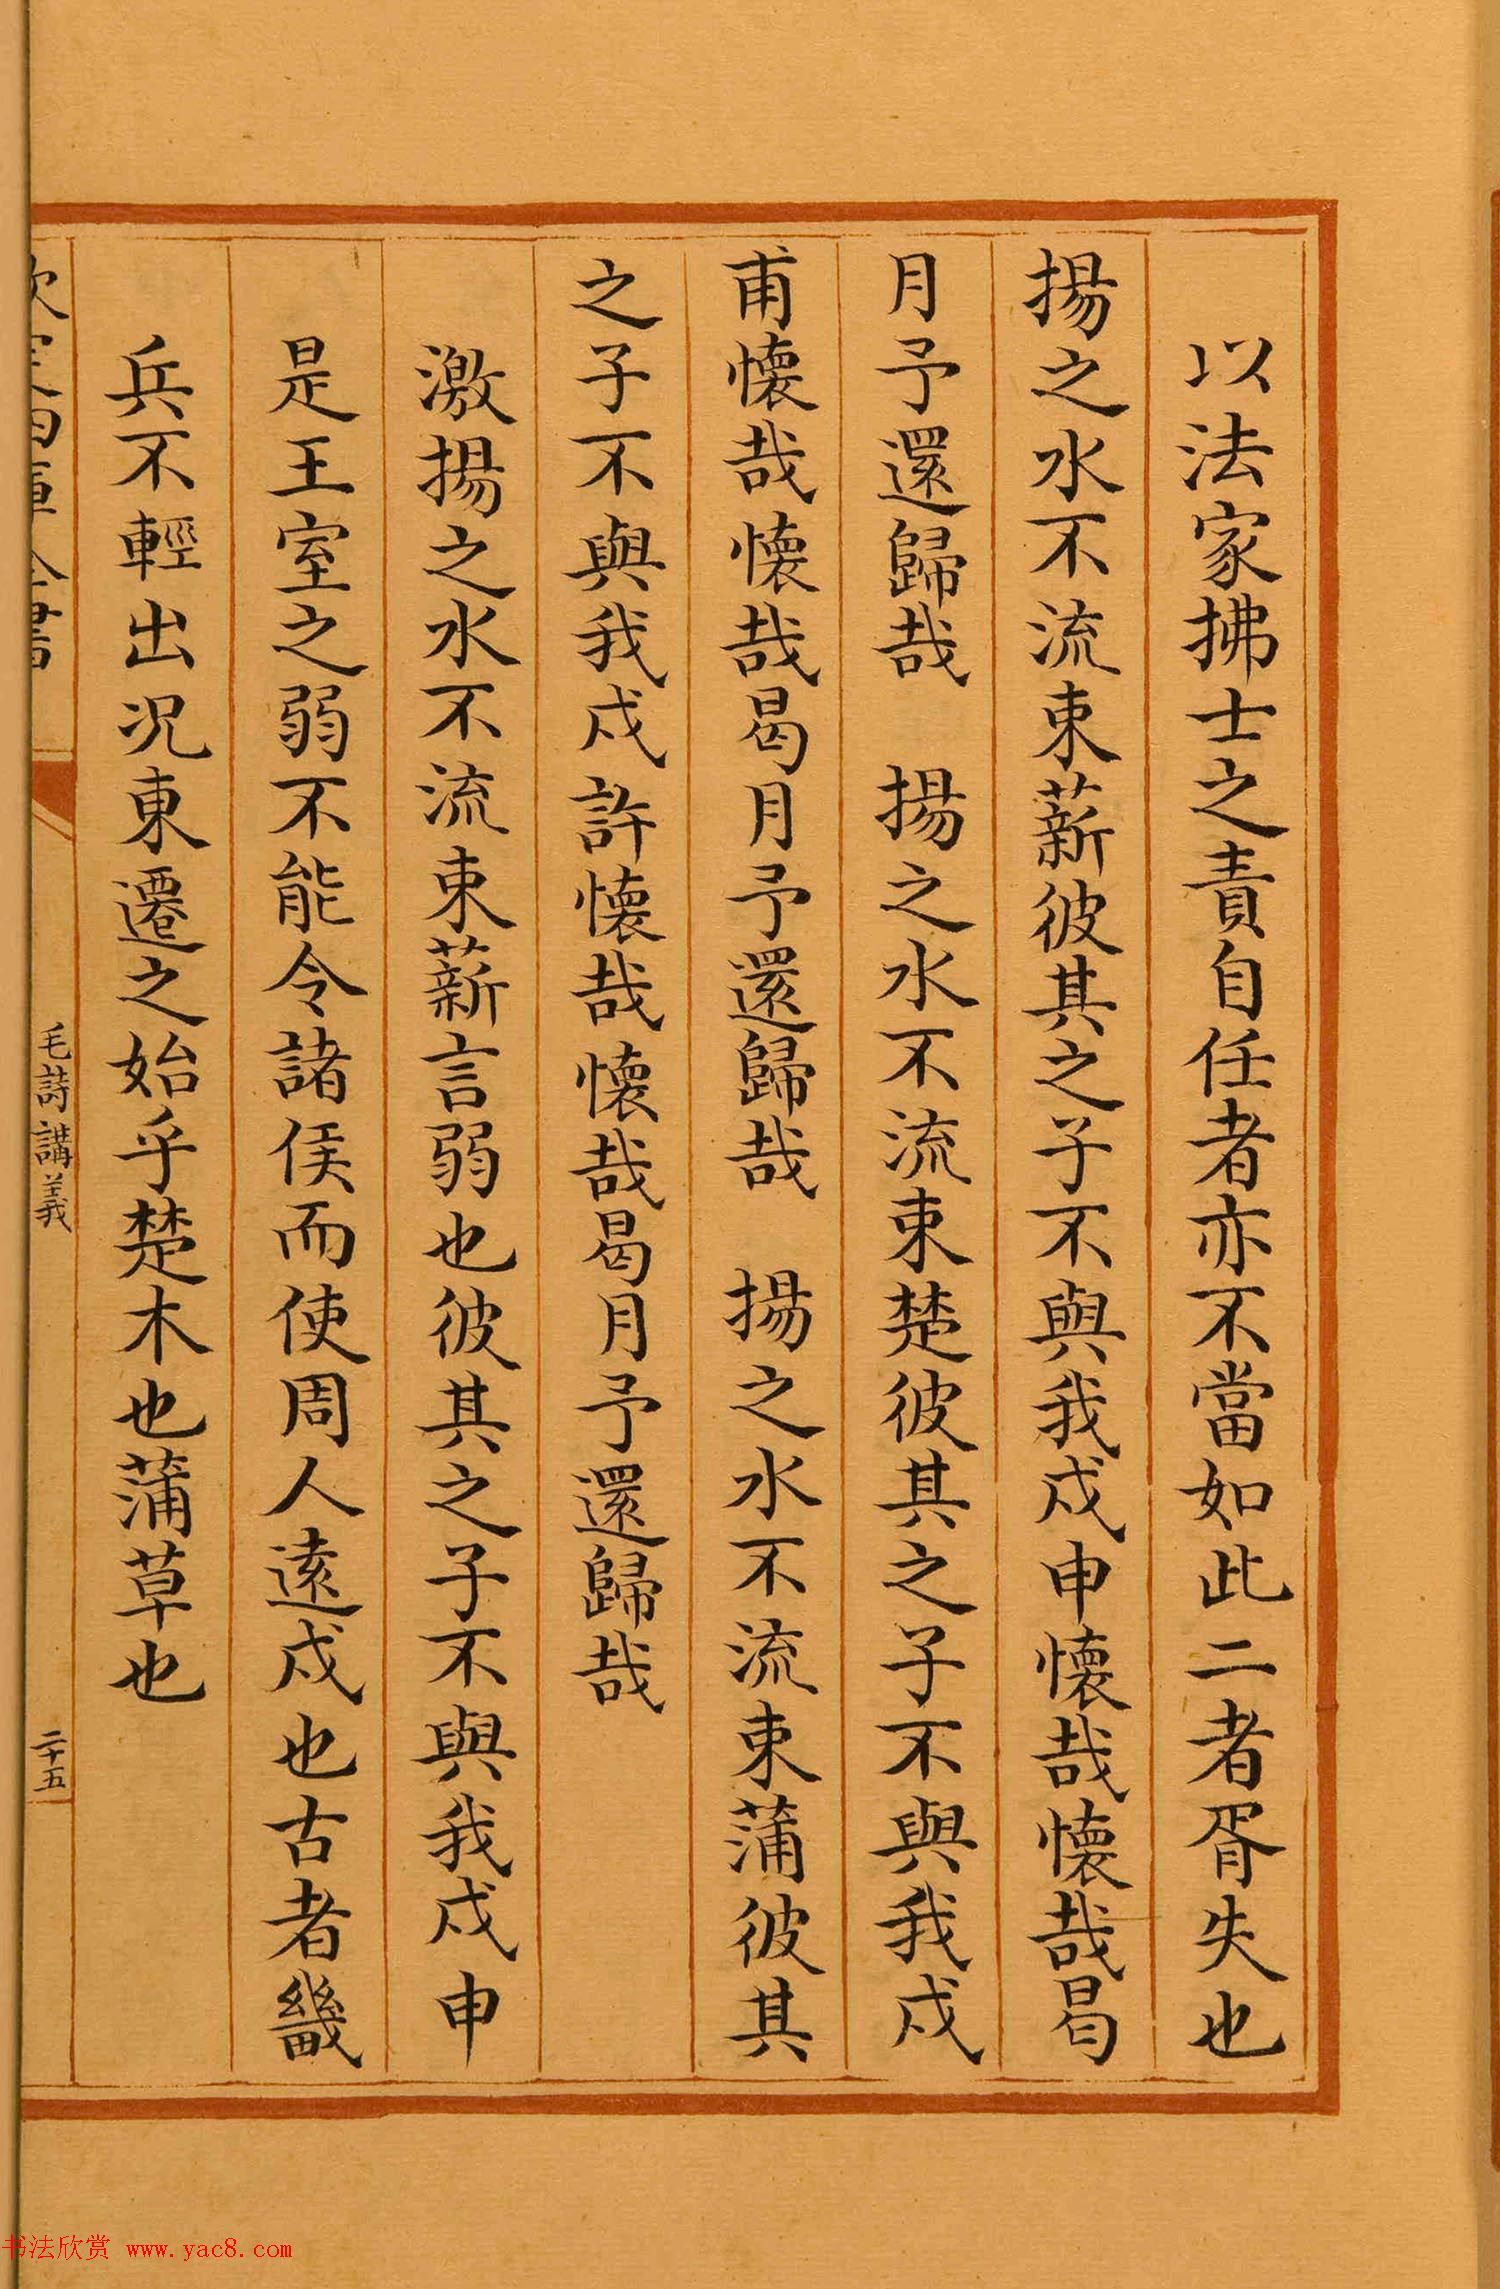 以法家拂士之責自任者亦不當如此二者胥失也
揚之水不流束薪彼其之子不與我戍申懷哉懷哉曷
月予還歸哉　揚之水不流束楚彼其之子不與我戍
甫懷哉懷哉曷月予還歸哉　揚之水不流束蒲彼其
之子不與我戍許懷哉懷哉曷月予還歸哉
激揚之水不流束薪言弱也彼其之子不與我戍申
是王室之弱不能令諸侯而使周人遠戍也古者畿
兵不輕出况東遷之始乎楚木也蒲草也
欽定四庫全書
毛詩講義
二十五
书法欣赏 www.yac8.com